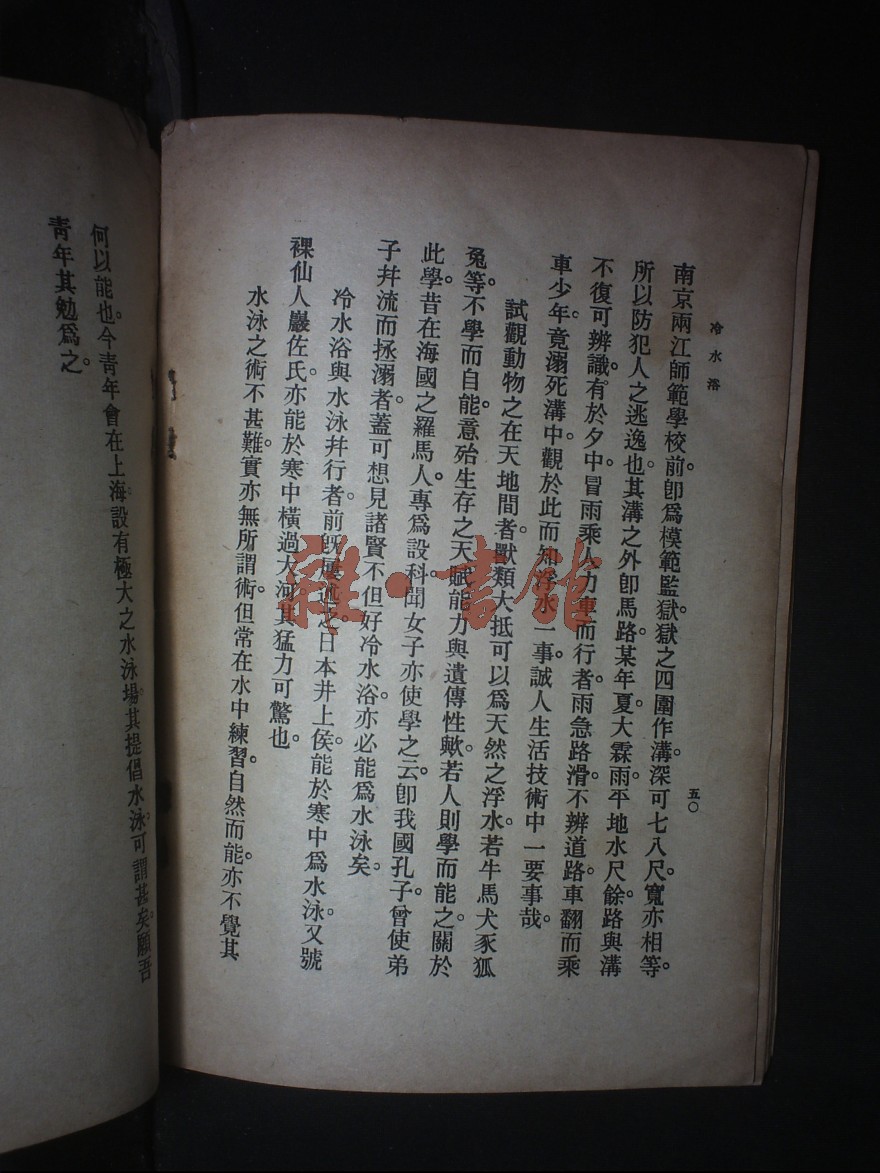 冷水浴
五〇
南京兩江師範學校前。卽爲模範監獄。獄之四圍作溝。深可七八尺。寬亦相等。
所以防犯人之逃逸也。其溝之外卽馬路。某年夏大霖雨。平地水尺餘。路與溝
不復可辨識。有於夕中冒雨乘人力車而行者。雨急路滑。不辨道路。車翻而乘
車少年。竟溺死溝中。觀於此而知浮水一事。誠人生活技術中一要事哉。
試觀動物之在天地間者。獸類大抵可以爲天然之浮水。若牛馬犬豕狐
兔等。不學而自能。意殆生存之天賦能力與遺傳性歟。若人則學而能之。關於
此學。昔在海國之羅馬人。專爲設科。聞女子亦使學之云。卽我國孔子曾使弟
子幷流而拯溺者。蓋可想見諸賢不但好冷水浴。亦必能爲水泳矣。
冷水浴與水泳幷行者。前旣屢述之。日本井上侯。能於寒中爲水泳。又號
裸仙人巖佐氏。亦能於寒中橫過大河。其猛力可驚也。
水泳之術不甚難。實亦無所謂術。但常在水中練習。自然而能。亦不覺其
何以能也。今靑年會在上海設有極大之水泳場。其提倡水泳。可謂甚矣。願吾
靑年其勉爲之。
雜·書館